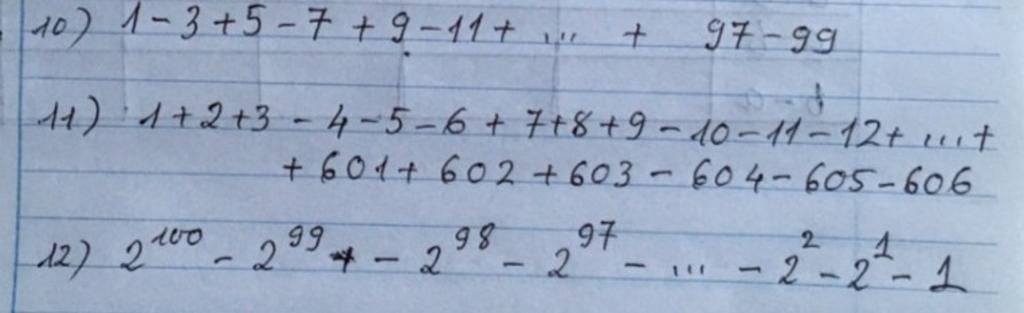 10) 1 - 3 + 5 - 7 + 9 - 11 + ... + 97 - 99
11) 1 + 2 + 3 - 4 - 5 - 6 + 7 + 8 + 9 - 10 - 11 - 12 + ... +
+ 601 + 602 + 603 - 604 - 605 - 606
12) 2^100 - 2^99 - 2^98 - 2^97 - ... - 2^2 - 2^1 - 1